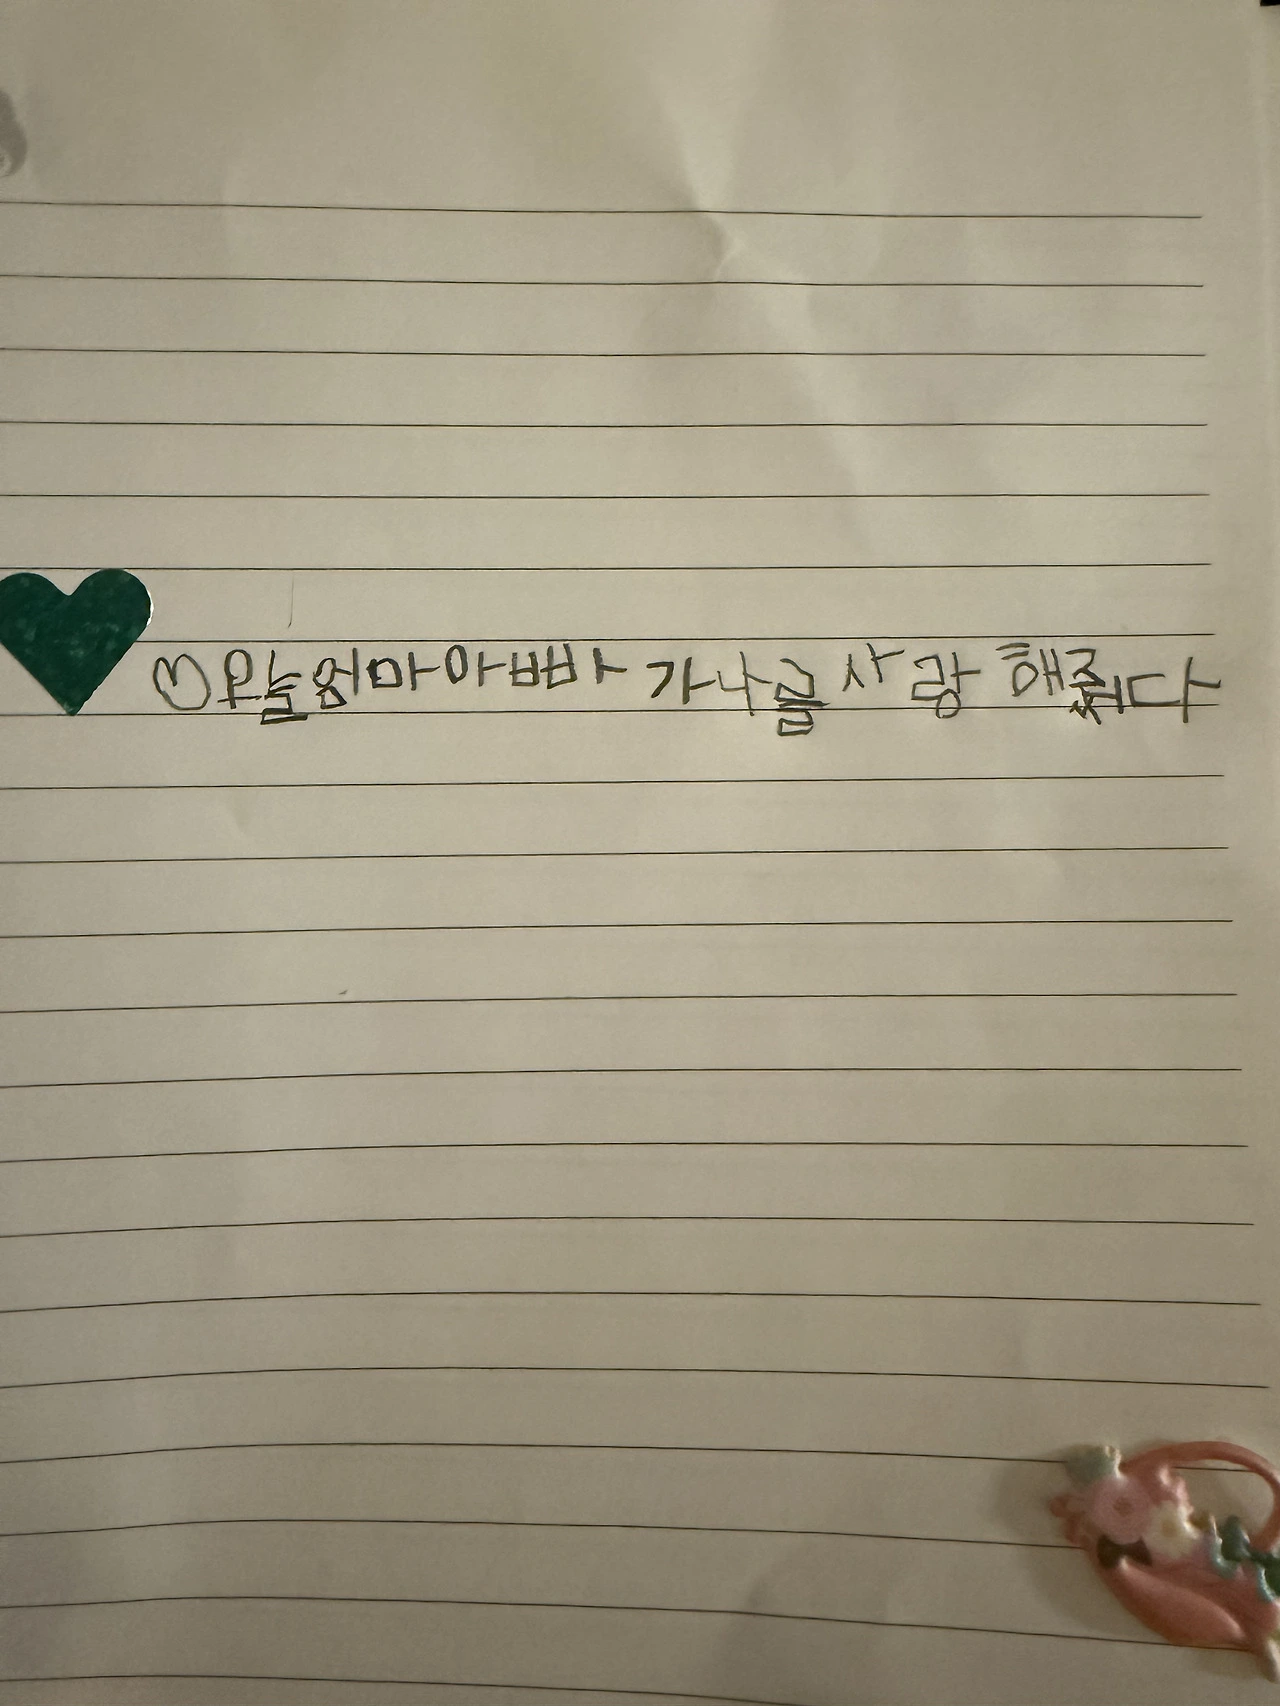 ♡오늘엄마아빠가나를사랑해줬다